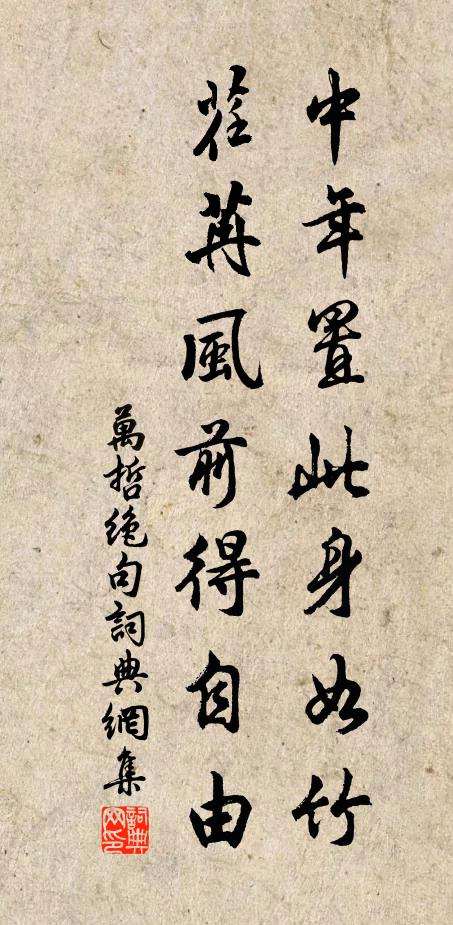 中年置此身如竹
荏苒風前得自由
萬哲絶句詞典網集
詞典網印